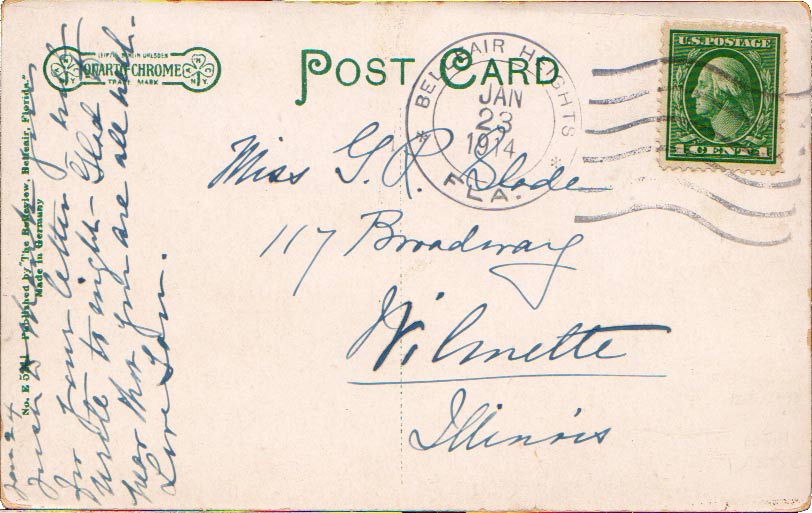 LEIPZIG BERLIN DRESDEN
QUARTO-CHROME
TRADE MARK
POST CARD
BELLEAIR HEIGHTS
JAN
23
1914
FLA.
U.S. POSTAGE
1 CENT 1
Miss G. R. Slade
117 Broadway
Wilmette
Illinois
No. E Published by "The Belleview, Belleair, Florida."
Made in Germany
Jan 24
Just to thank you
for your letter
write to night - Glad
hear that you are all well.
Love